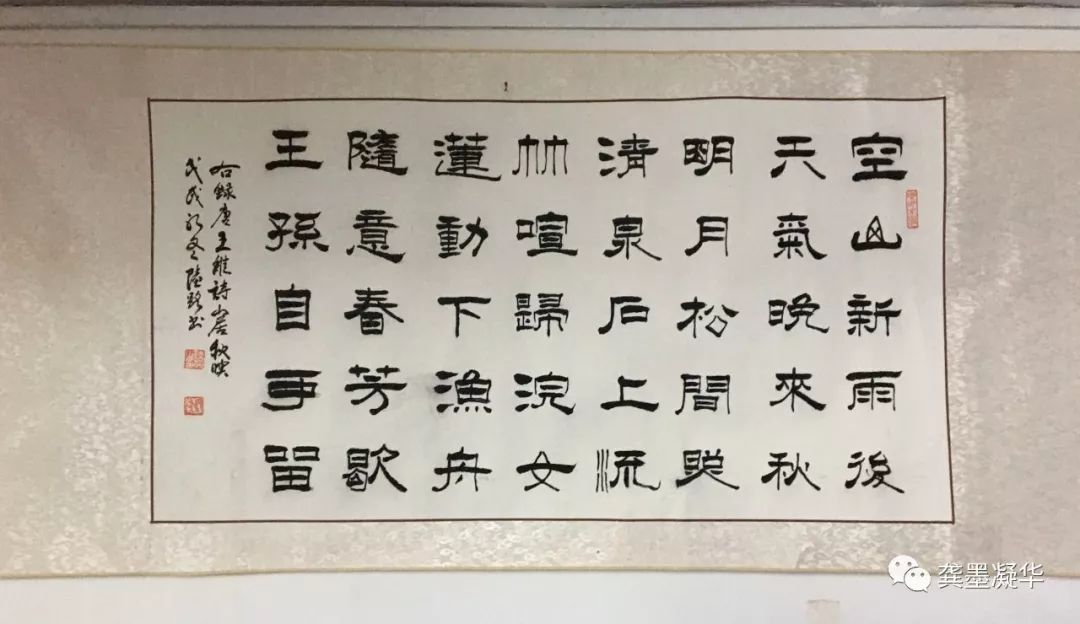 空山新雨後
天氣晚來秋
明月松間照
清泉石上流
竹喧歸浣女
蓮動下漁舟
隨意春芳歇
王孫自可留
右録唐王維詩山居秋暝
戊戌初冬陸书
龚墨凝华